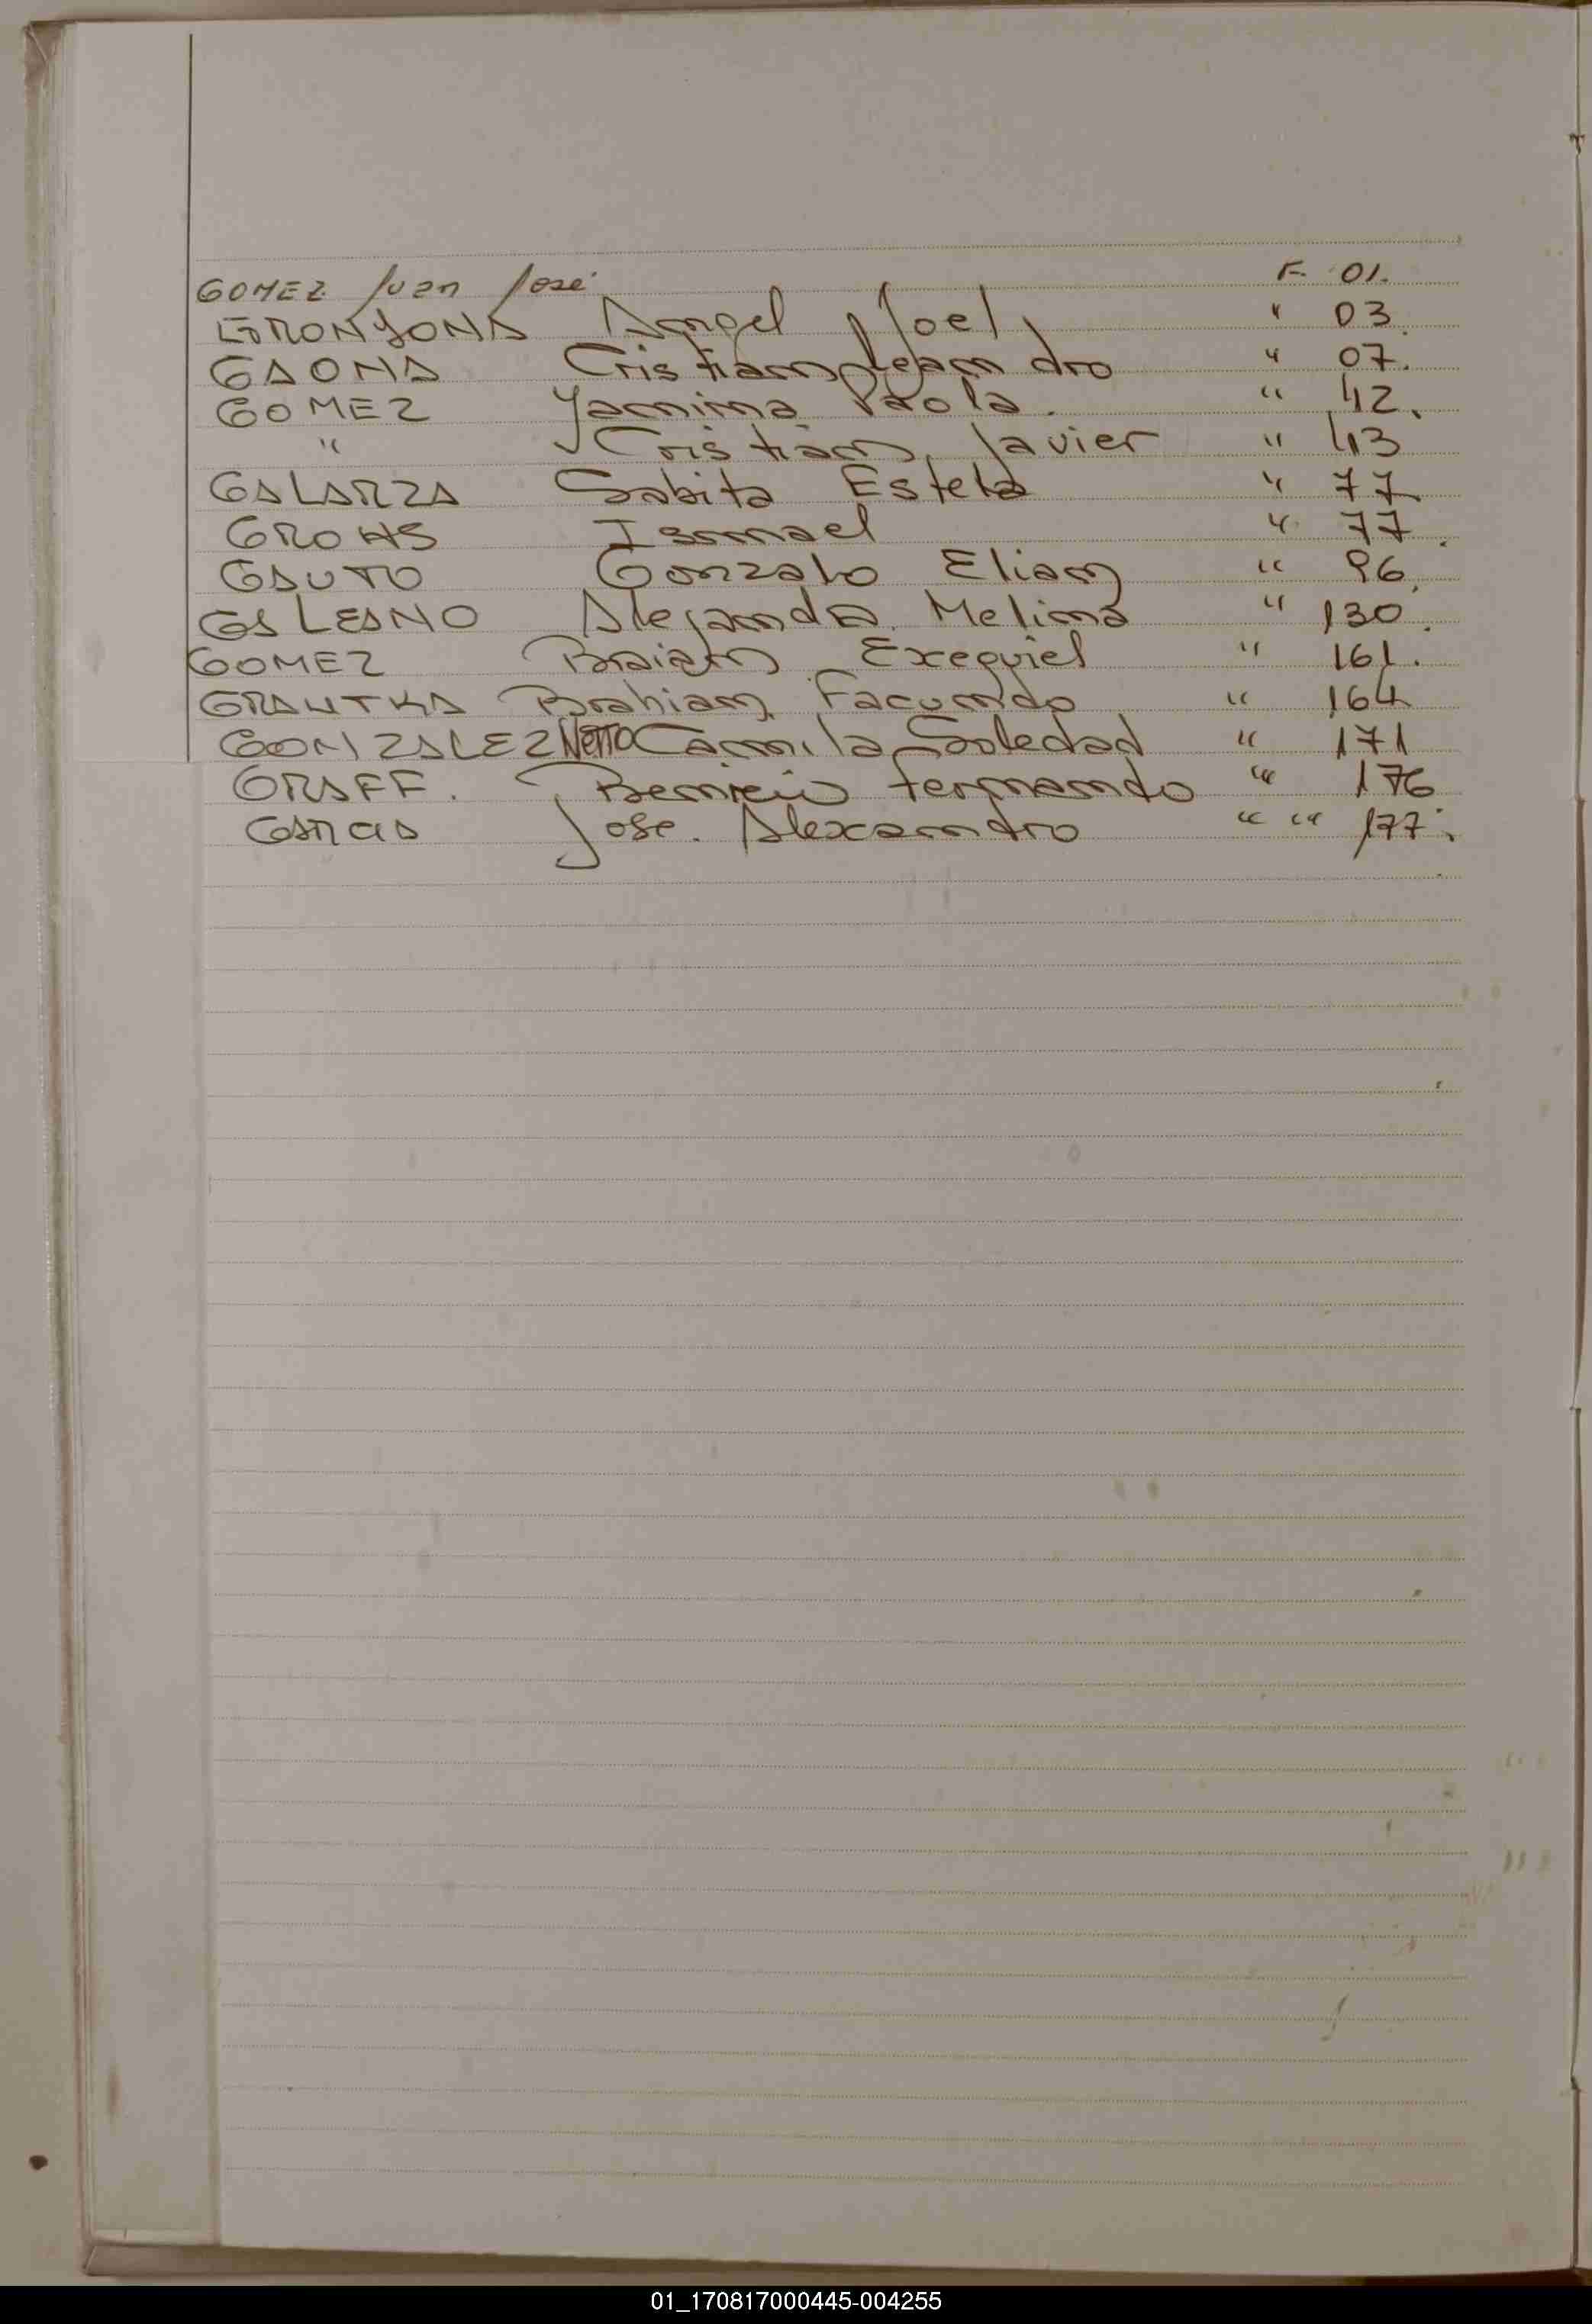 GOMEZ Juan José F. 01.
GRONJONA Angel Noel " 03.
GAONA Cristian Alejandro " 07.
GOMEZ Yamina Paola. " 42.
" Cristian Javier " 43
GALARZA Sabita Estela " 77
GROHS Ismael " 77.
GAUTO Gonzalo Elian " 96.
GALEANO Alejandra Melina " 130.
GOMEZ Braian Exequiel " 161.
GRAUTKA Brahian Facundo " 164
GONZALEZ NETTO Camila Soledad " 171
GRAFF. Fernando " 176
Jose. Alexandro " " 177.
01_170817000445-004255